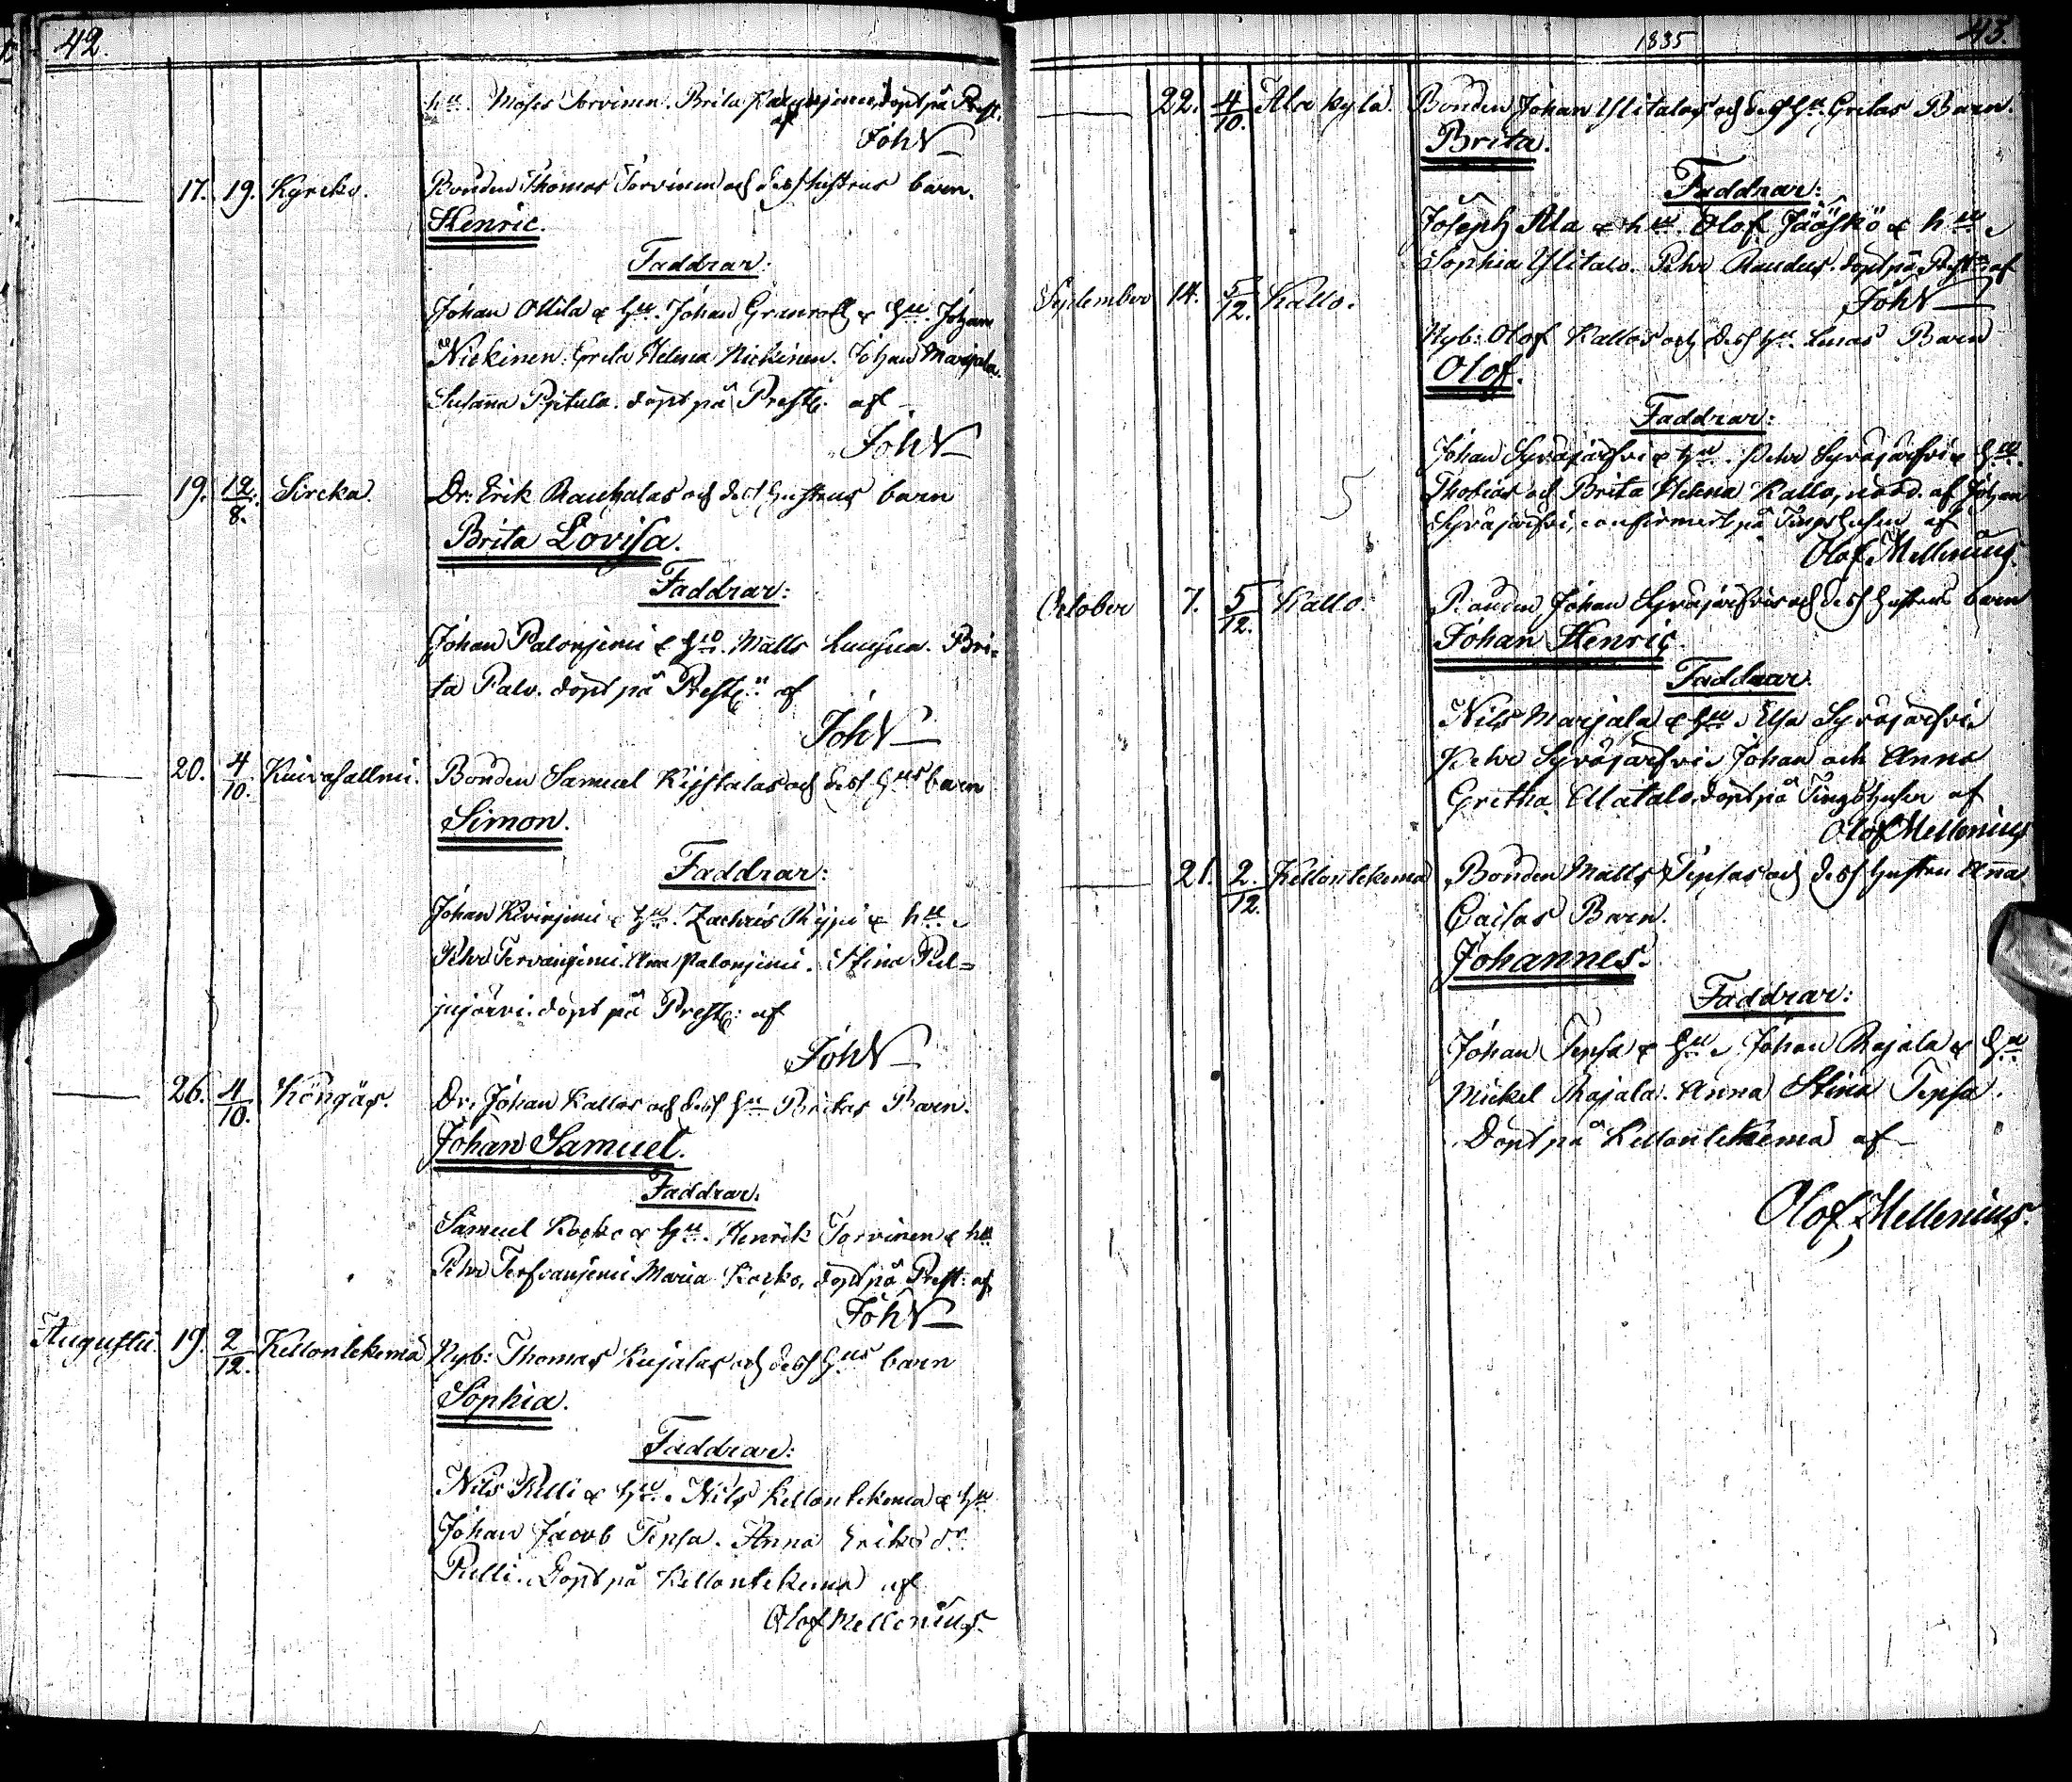 42.
hu. Moses Torvinen. Brita döpt på Prest.
af
JohN
17. 19. Kyrcko. Bonden Thomas Torvinen och dess hustrus barn.
Henric.
Faddrar:
Johan Ollila & hu. Johan Granroth & hu. Johan
Niskinen. Greta Helena Niskinen. Johan Marjala.
Susanna Pijtula. döpt på Prestg: af
JohN
19. 19/8. Sircka. Dr. Erik Rauhalas och dess hustrus barn
Brita Lovisa.
Faddrar:
Johan Palonjemi & hu. Matts Bri-
ta Palo. döpt på Prestg. af
JohN
20. 4/10. Bonden Samuel och dess hus barn
Simon.
Faddrar:
Johan & hu. Zachris & hu.
Pehr Anna Palonjemi. Stina Pul-
jujärvi. döpt på Prestg: af
JohN
26. 4/10. Köngäs. Dr. Johan Kallos och dess hu Britas Barn.
Johan Samuel.
Faddrar.
Samuel Kocko & hu. Henrik Torvinen & hu
Pehr Maria Kocko, döpt på Prest: af
JohN
Augustii. 19. 2/12. Kellontekemä Nyb: Thomas Kujalas och dess hus barn
Sophia.
Faddrar:
Nils Pulli & hu. Nils Kellontekemä & hu
Johan Jacob Tepsa. Anna Eriksdr.
Pulli. Döpt på Kellontekemä af
Olof Mellenius.
1835
43.
22. 4/10. Alakylä. Bonden Johan Ylitalos och dess hu. Gretas Barn.
Brita.
Faddrar:
Joseph Ala & hu. Olof Jääskö & hu
Sophia Ylitalo. Pehr Raudus. döpt på Prestg. af
JohN
September 14. 5/12. Kallo. Nyb: Olof Kallos och dess hu. Barn
Olof.
Faddrar:
Johan Syväjärfvi & hu. Pehr Syväjärfvi & hu.
Thobias och Brita Helena Kallo, nöd. af Johan
Syväjärfvi, confirmert på Tingshusen af
Olof Mellenius.
October 7. 5/12. Kallo. Bonden Johan Syväjärfvis och dess hustrus barn
Johan Henric.
Faddrar.
Nils Marjala & hu. Elsa Syväjärfvi
Pehr Syväjärfvi. Johan och Anna
Gretha Alatalo, döpt på Tingshusen af
Olof Mellenius
21. 2/12. Kellontekemä Bonden Matts Tepsas och dess hustru Anna
Cajsas Barn.
Johannes.
Faddrar:
Johan Tepsa & hu. Johan Rajala & hu
Mickel Rajala. Anna Stina Tepsa.
Döpt på Kellontekemä af
Olof Mellenius.